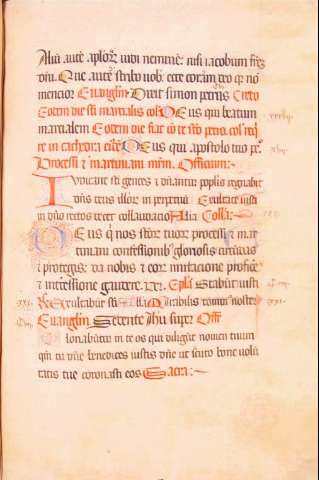 Aliū autē aplor̄ vidi neminē nisi iacobum frēz
dñi. Que autē scribo vob̄ ecce coram deo qr̄ nō
mencior Euanglm̄ Dixit simon petrus Creto
Eodem die sti marcialis col̄ Deus qui beatum
marcialem Eodem die fiat cō de sto petro. col̄
re in cathedra eidē Deus qui apostolo tuo pe.
Processi ⁊ martiniani mr̄m. Officium:
Iudicant sti gentes ⁊ dñantur poplis regnabit
dñs deus illor̄ in perpetuū Exultate iusti
in dño rectos decet collaudacio Alia Colla:
Deus q̄ nos stōr̄ tuor̄ processi ⁊ mar
tiniani confessionib; gloriosis circūdas
⁊ protegis: da nobis ⁊ eor̄ imitacione proficē
⁊ intcessione gaudere. Ep̄la Stabūt iusti
Exultabūt sti Alla Mirabilis dominus noster
Euanglm̄ Sedente ihū super Off
Gloriabūtur in te oṡ qui diligūt nomen tuum
qm̄ tu dñe benedices iustis dñe ut scuto bone volū
tatis tue coronasti eos Sacra: